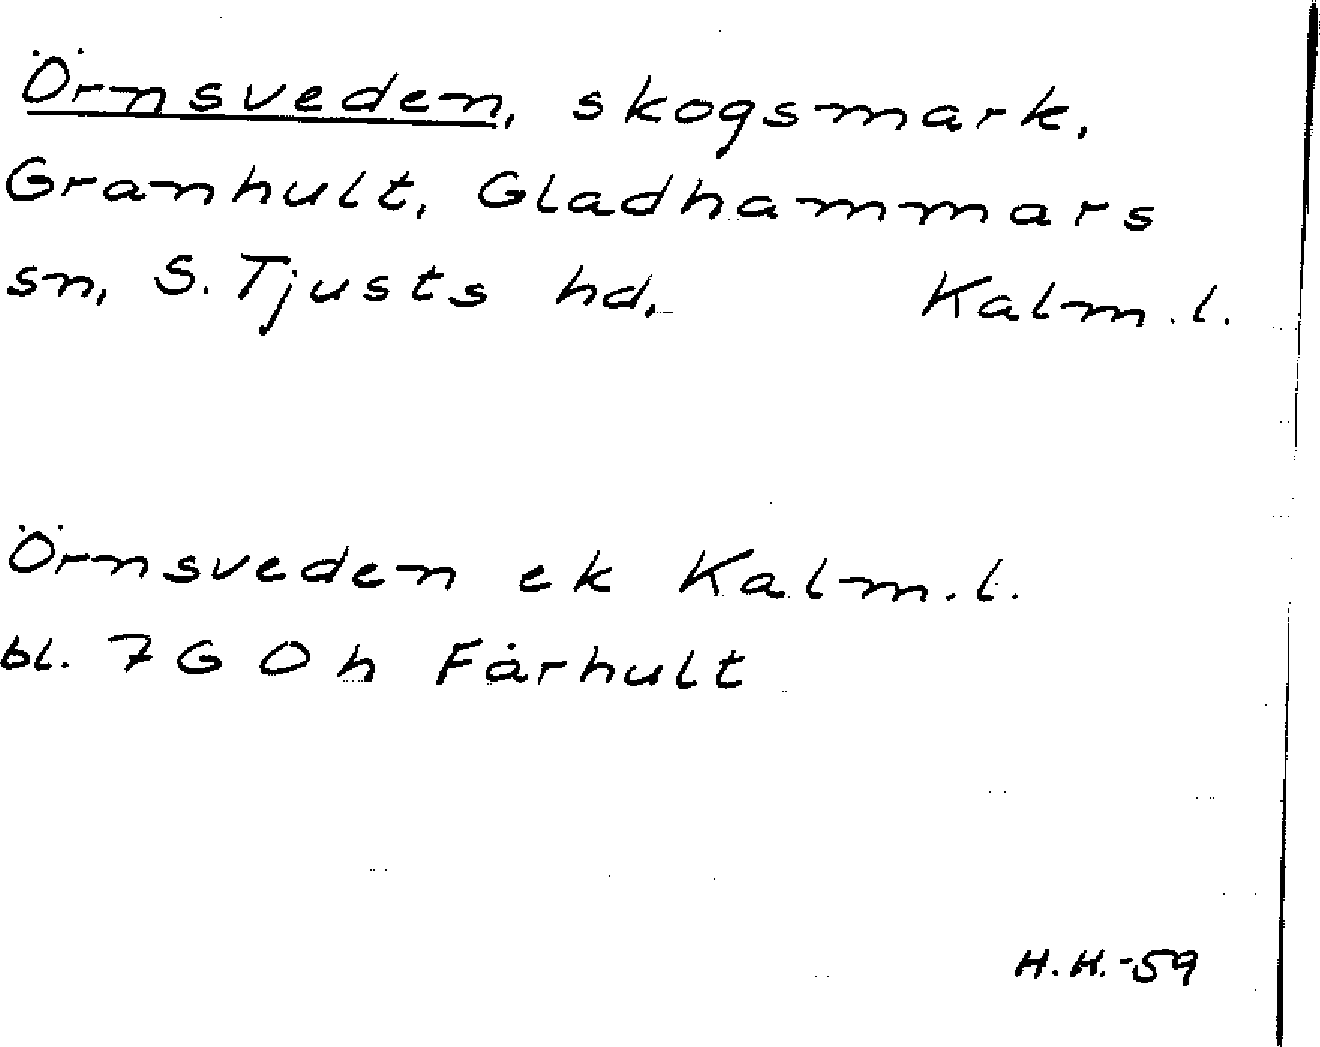 Örnsveden, skogsmark,
Granhult, Gladhammars
sn, S. Tjusts hd, Kalm. l.
Örnsveden ek Kalm. l.
bl. 7 G O h Fårhult
H.H.-59